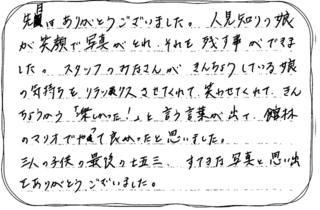 先日はありがとうございました。人見知りの娘
が笑顔で写真がとれ、それを残す事ができま
した。スタッフのみなさんが きんちょうしている娘
の気持ちを リラックスさせてくれて、笑わせてくれて、きん
ちょうから「楽しかった!」と言う言葉が出て、館林
のマリオでやって良かったと思いました。
三人の子供の最後の七五三、すてきな写真と思い出
をありがとうございました。